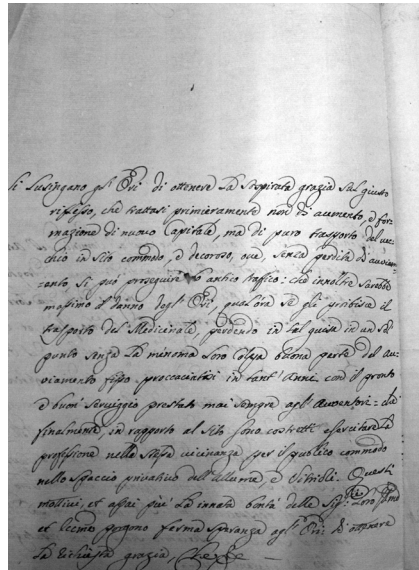 Si lusingano gl' Ori di ottenere la sospirata grazia sul giusto
riflesso, che trattasi primieramente non di aumento, o for
mazione di nuovo Capitale, ma di puro trasporto del vec
chio in sito commodo, e decoroso, ove senza perdita di avvia
mento si può proseguire l'antico traffico: che inoltre sarebbe
massimo il danno degl' Ori, qualora se gli proibisse il
trasporto del Medicinale, perdendo in tal guisa in un sol
punto senza la minoma loro colpa buona parte del av
viamento fisso proccacciatosi in tant' Anni con il pronto
e buon servigio prestato mai sempre agl' Avventori: che
finalmente, in rapporto al sito sono costretti esercitare la
professione nelle stesse vicinanze per il publico commodo
nello spaccio privativo dell' Allume, e Vitrioli. Questi
mottivi, et assai piu' la innata bontà delle Sig:rie Loro Ill:me
et Eccme porgono ferma speranza agl' Ori d'ottenere
la richiesta grazia, Che